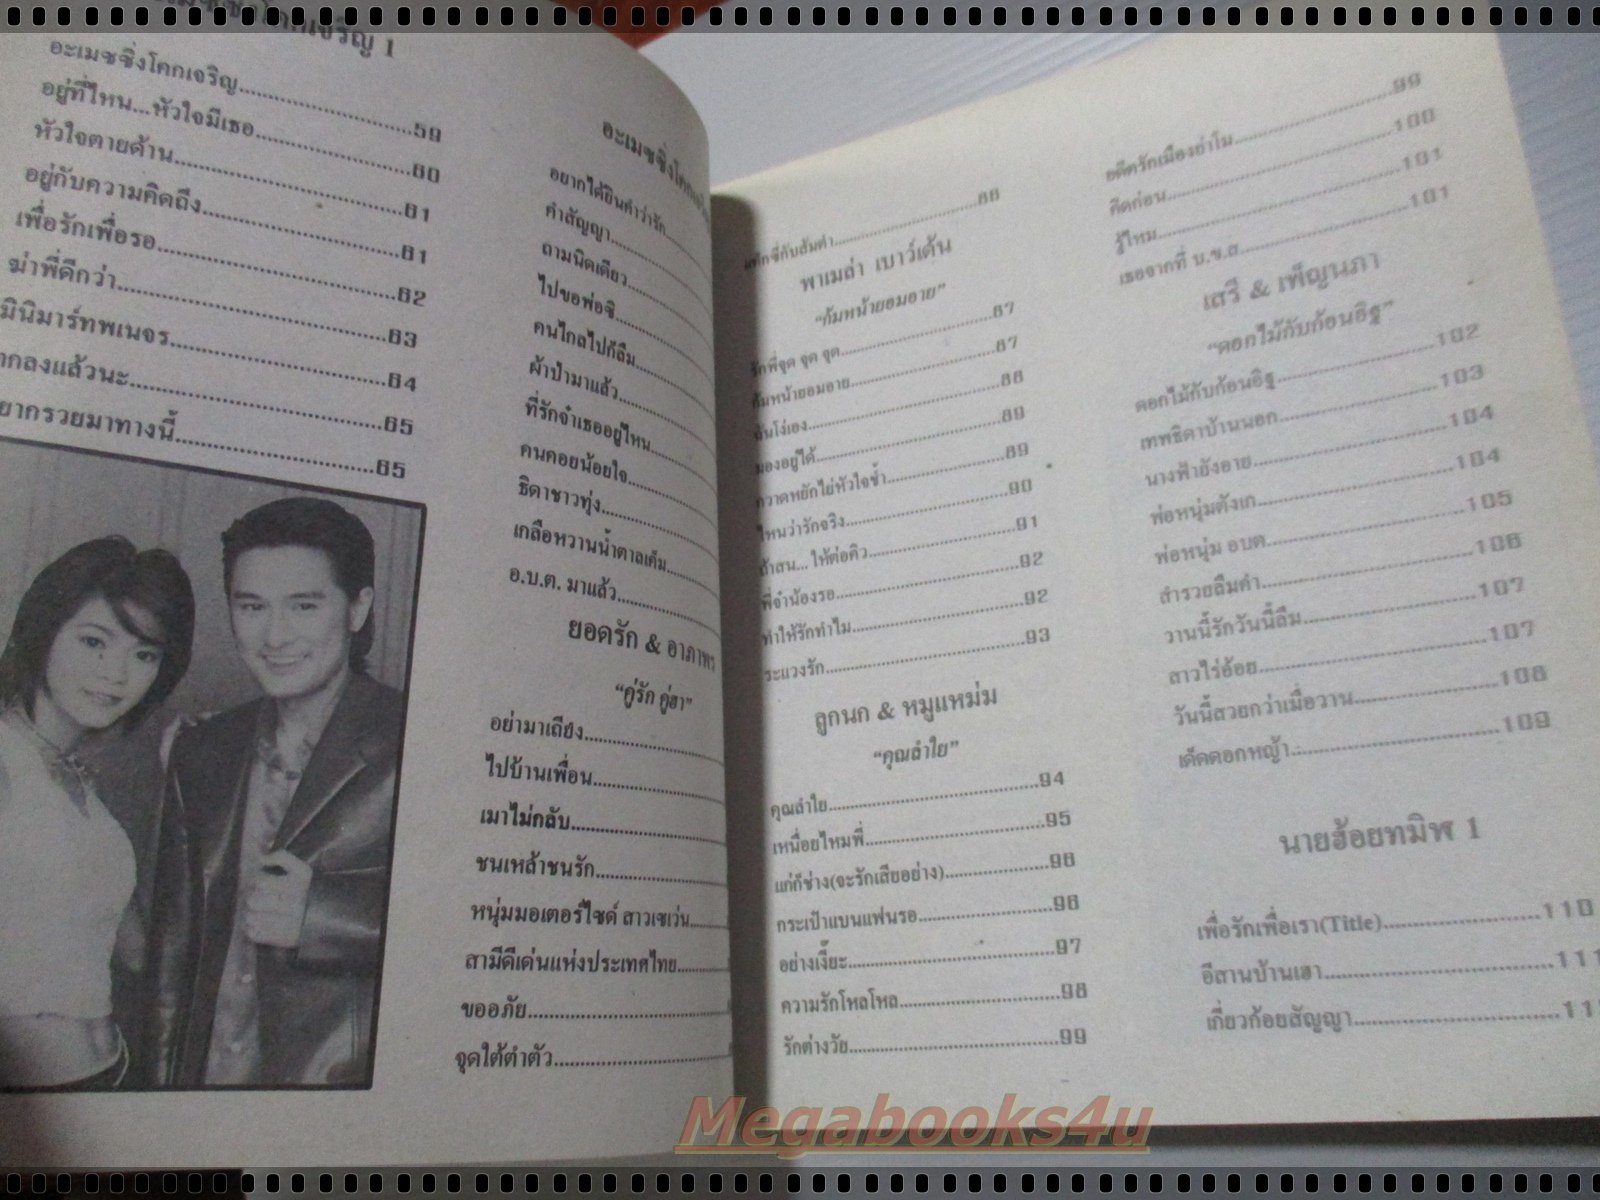 อะเมซซิ่งโคกเจริญ 1
อะเมซซิ่งโคกเจริญ....................59
อยู่ที่ไหน...หัวใจมีเธอ....................60
หัวใจตายด้าน....................61
อยู่กับความคิดถึง....................61
เพื่อรักเพื่อรอ....................62
ฆ่าพี่ดีกว่า....................63
มินิมาร์ทพเนจร....................64
ตกลงแล้วนะ....................65
ยากรวยมาทางนี้....................65
อะเมซซิ่งโคก
อยากได้ยินคำว่ารัก
คำสัญญา
ถามนิดเดียว
ไปขอพ่อซิ
คนไกลไปก็ลืม
ผ้าป่ามาแล้ว
ที่รักจ๋าเธออยู่ไหน
คนคอยน้อยใจ
ธิดาชาวทุ่ง
เกลือหวานน้ำตาลเค็ม
อ.บ.ต. มาแล้ว
ยอดรัก & อาภาพร
“คู่รัก คู่ฮา”
อย่ามาเถียง
ไปบ้านเพื่อน
เมาไม่กลับ
ชนเหล้าชนรัก
หนุ่มมอเตอร์ไซด์ สาวเซเว่น
สามีดีเด่นแห่งประเทศไทย
ขออภัย
จุดใต้ตำตัว
แท็กซี่กับส้มตำ....................86
พาเมล่า เบาว์เด้น
“ก้มหน้ายอมอาย”
รักพี่จุด จุด จุด....................87
ก้มหน้ายอมอาย....................87
ฉันโง่เอง....................88
มองอยู่ได้....................89
กวาดหยักไย่หัวใจช้ำ....................89
ไหนว่ารักจริง....................90
ถ้าสน... ให้ต่อคิว....................91
พี่จ๋าน้องรอ....................92
ทำให้รักทำไม....................92
ระแวงรัก....................93
ลูกนก & หมูแหม่ม
“คุณลำไย”
คุณลำไย....................94
เหนื่อยไหมพี่....................95
แก่ก็ช่าง(จะรักเสียอย่าง)....................96
กระเป๋าแบนแฟนรอ....................96
อย่างเงี๊ยะ....................97
ความรักโหลโหล....................98
รักต่างวัย....................99
อดีตรักเมืองย่าโม....................99
คิดก่อน....................100
รู้ไหม....................101
เธอจากที่ บ.ข.ส.....................101
เสรี & เพ็ญนภา
“ดอกไม้กับก้อนอิฐ”
ดอกไม้กับก้อนอิฐ....................102
เทพธิดาบ้านนอก....................103
นางฟ้ายังอาย....................104
พ่อหนุ่มตังเก....................104
พ่อหนุ่ม อบต.....................105
สำรวยลืมคำ....................106
วานนี้รักวันนี้ลืม....................107
สาวไร่อ้อย....................107
วันนี้สวยกว่าเมื่อวาน....................108
เด็ดดอกหญ้า....................109
นายฮ้อยทมิฬ 1
เพื่อรักเพื่อเรา(Title)....................110
อีสานบ้านเฮา....................111
เกี่ยวก้อยสัญญา....................11
Megabooks4u